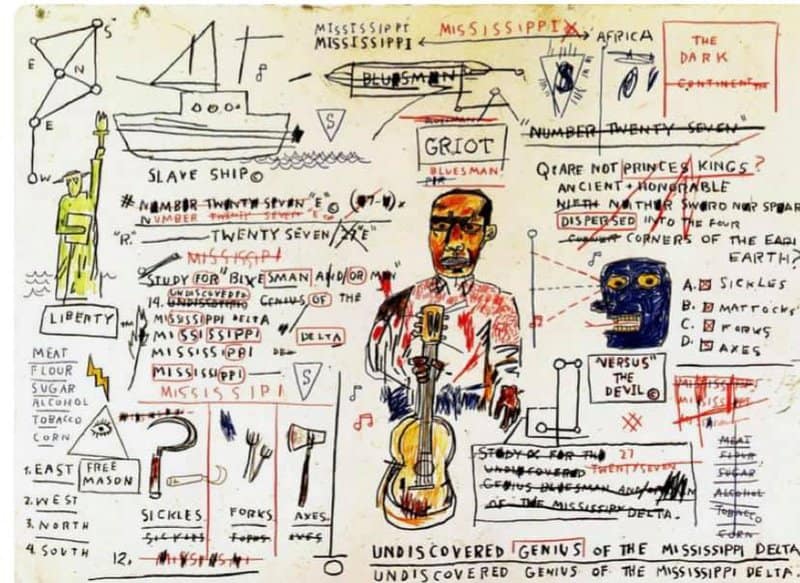 S
E
N
E
W
MISSISSIPPI MISSISSIPPI
MISSISSIPPI
AFRICA
BLUESMAN
$
THE
DARK
CONTINENT
S
GRIOT
BLUESMAN
"NUMBER TWENTY SEVEN"
SLAVE SHIP©
# NUMBER TWENTY SEVEN "E" ©
NUMBER TWENTY SEVEN "E"
"R." TWENTY SEVEN "E"
MISSISSIPI
STUDY FOR "BLUESMAN AND/OR MAN"
UNDISCOVERED
14. UNDISCOVERED GENIUS OF THE
MISSISSIPPI DELTA
MISSISSIPPI DELTA
MISSISSIPPI DE
MISSISSIPPI
MISSISSIPI
S
LIBERTY
MEAT
FLOUR
SUGAR
ALCOHOL
TOBACCO
CORN
1. EAST
2. WEST
3. NORTH
4. SOUTH
FREE
MASON
SICKLES FORKS AXES
SICKLES FORKS AXES
12.
Q: ARE NOT PRINCES KINGS?
ANCIENT + HONORABLE
NEITHER SWORD NOR SPEAR
DISPERSED INTO THE FOUR
CORNERS OF THE
EARTH?
A. SICKLES
B. MATTOCKS
C. FORKS
D. AXES
"VERSUS"
THE
DEVIL©
MISSISSIPPI
MEAT
FLOUR
SUGAR
ALCOHOL
TOBACCO
CORN
STUDY FOR THE 27
UNDISCOVERED TWENTYSEVEN
GENIUS BLUESMAN AND/OR
OF THE MISSISSIPPI DELTA.
UNDISCOVERED GENIUS OF THE MISSISSIPPI DELTA
UNDISCOVERED GENIUS OF THE MISSISSIPPI DELTA.